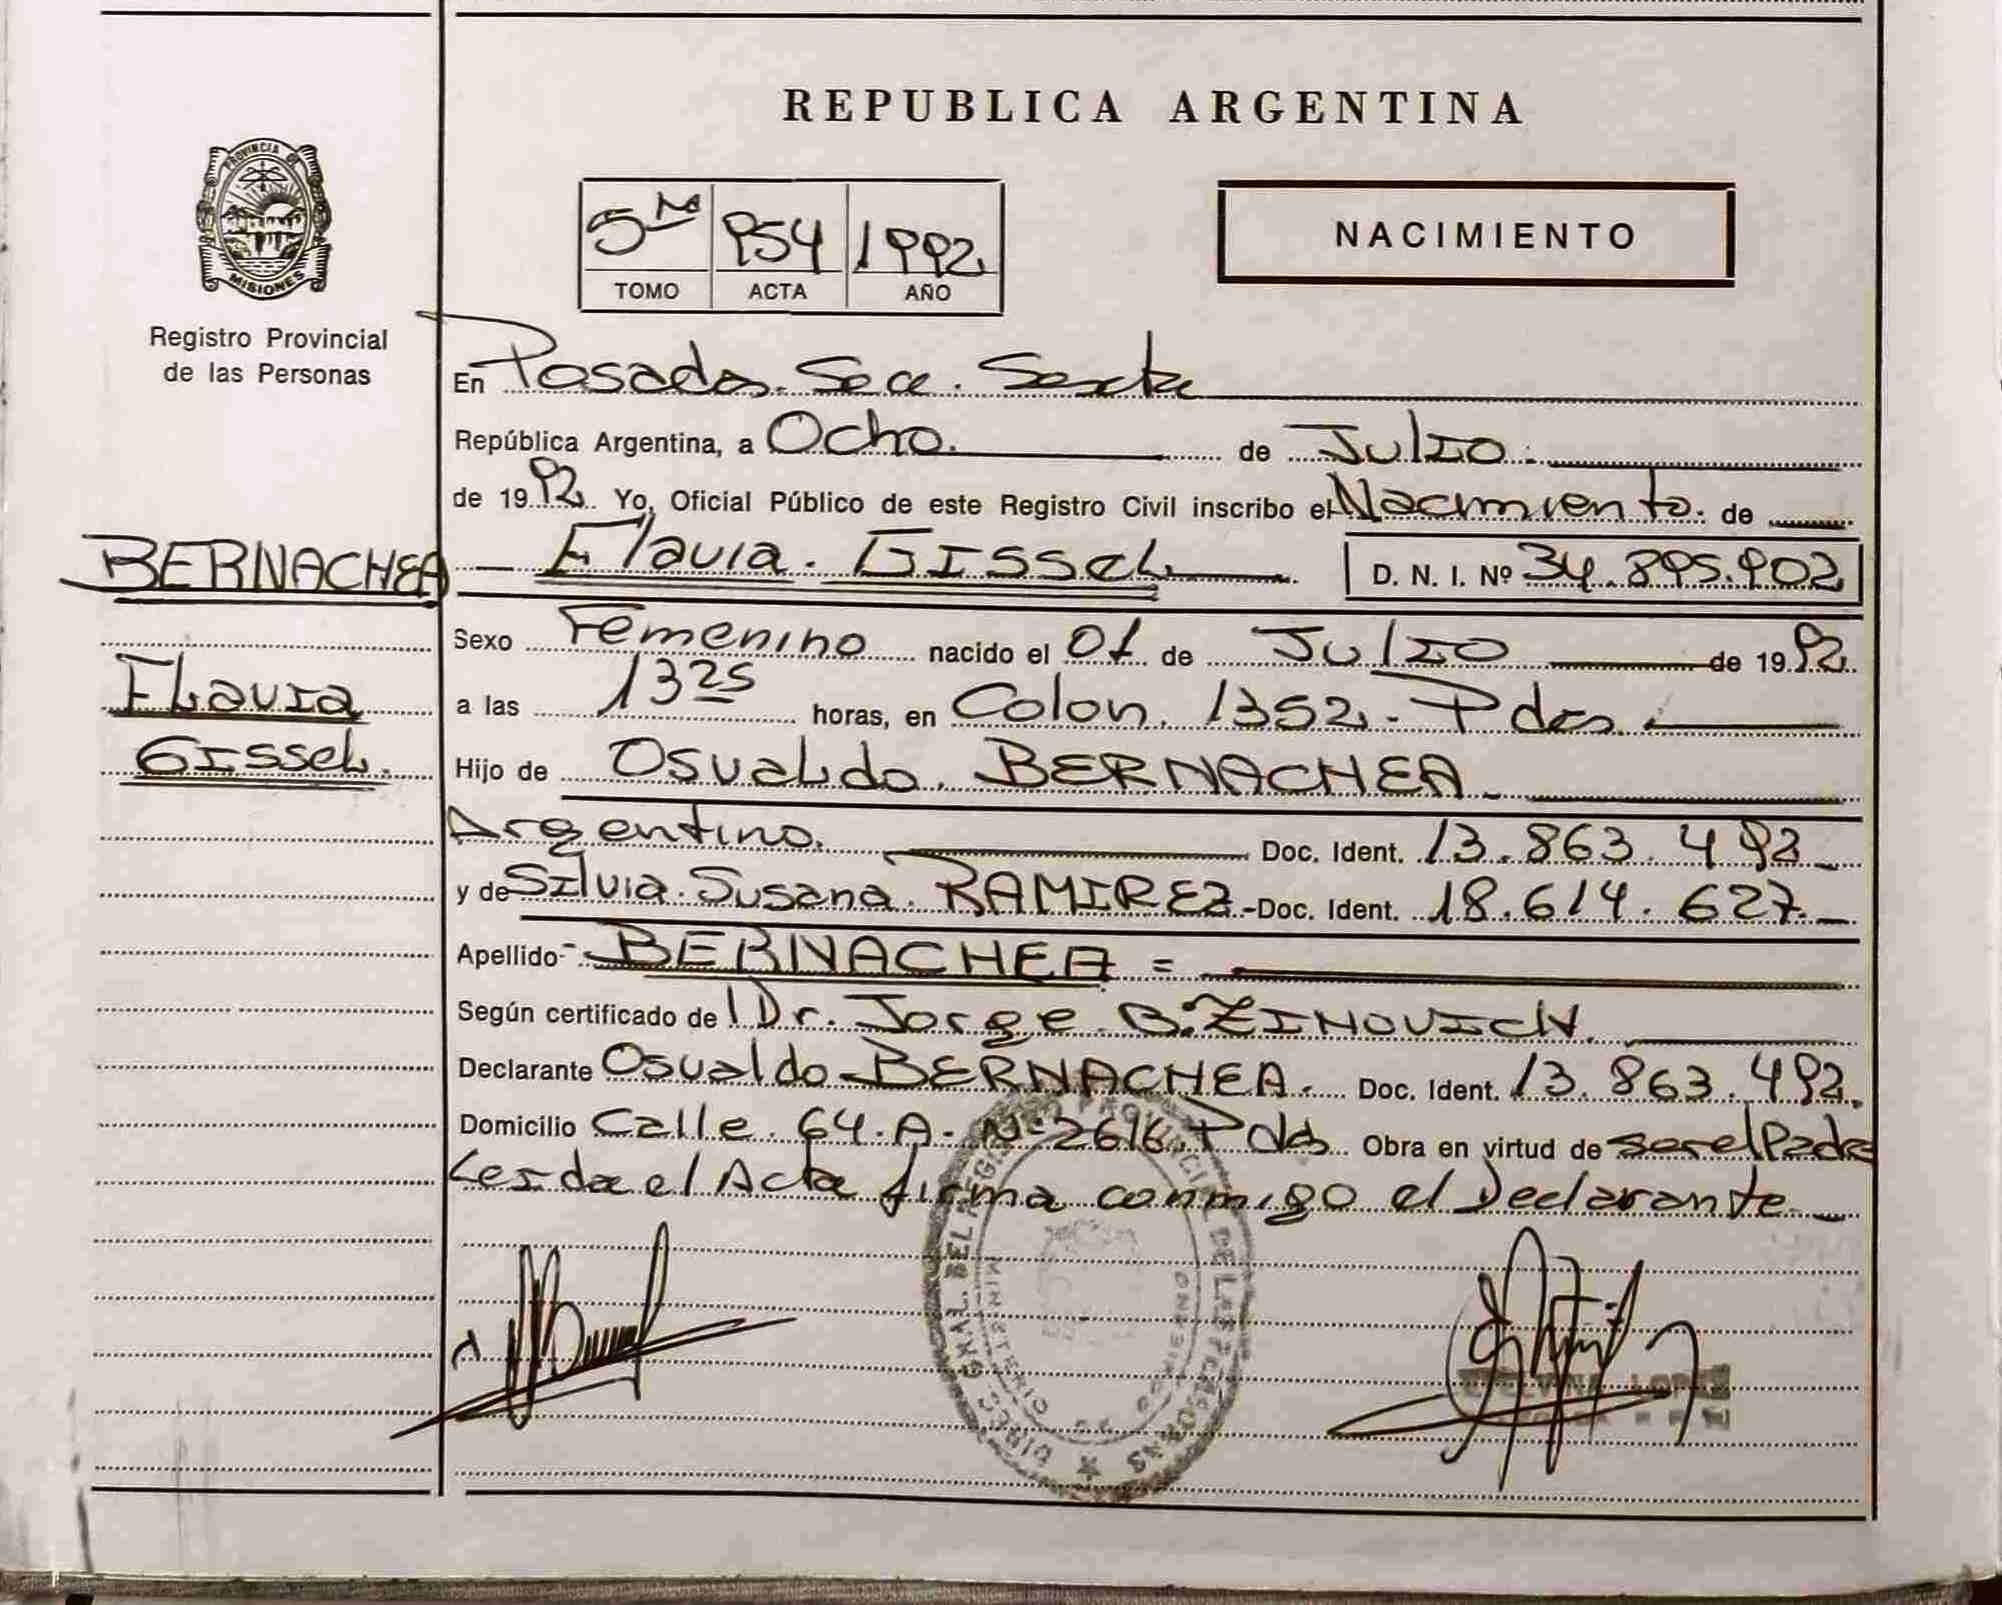 REPUBLICA ARGENTINA
PROVINCIA DE
MISIONES
Registro Provincial
de las Personas
5to 954 1992
TOMO ACTA AÑO
NACIMIENTO
En Posadas. Sec. Sexta
República Argentina, a Ocho. de Julio.
de 1992. Yo, Oficial Público de este Registro Civil inscribo el Nacimiento. de
BERNACHEA
Flavia
Gissel.
Flavia. Gissel D. N. I. Nº 34.895.902
Sexo Femenino nacido el 01 de Julio de 1992.
a las 13 25 horas, en Colon. 1352. Pdas.
Hijo de Osvaldo. BERNACHEA
Argentino. Doc. Ident. 13.863.492
y de Silvia. Susana. RAMIREZ. Doc. Ident. 18.614.627.
Apellido BERNACHEA =
Según certificado de Dr. Jorge B. ZINOVICH.
Declarante Osvaldo BERNACHEA. Doc. Ident. 13.863.492.
Domicilio Calle. 64. A. Nº 2616. Pdas. Obra en virtud de ser el Padre
Leida el Acta firma conmigo el Declarante.
DIREC. GRAL. DEL REGISTRO PROVINCIAL DE LAS PERSONAS
MINISTERIO DE GOBIERNO
LOPEZ